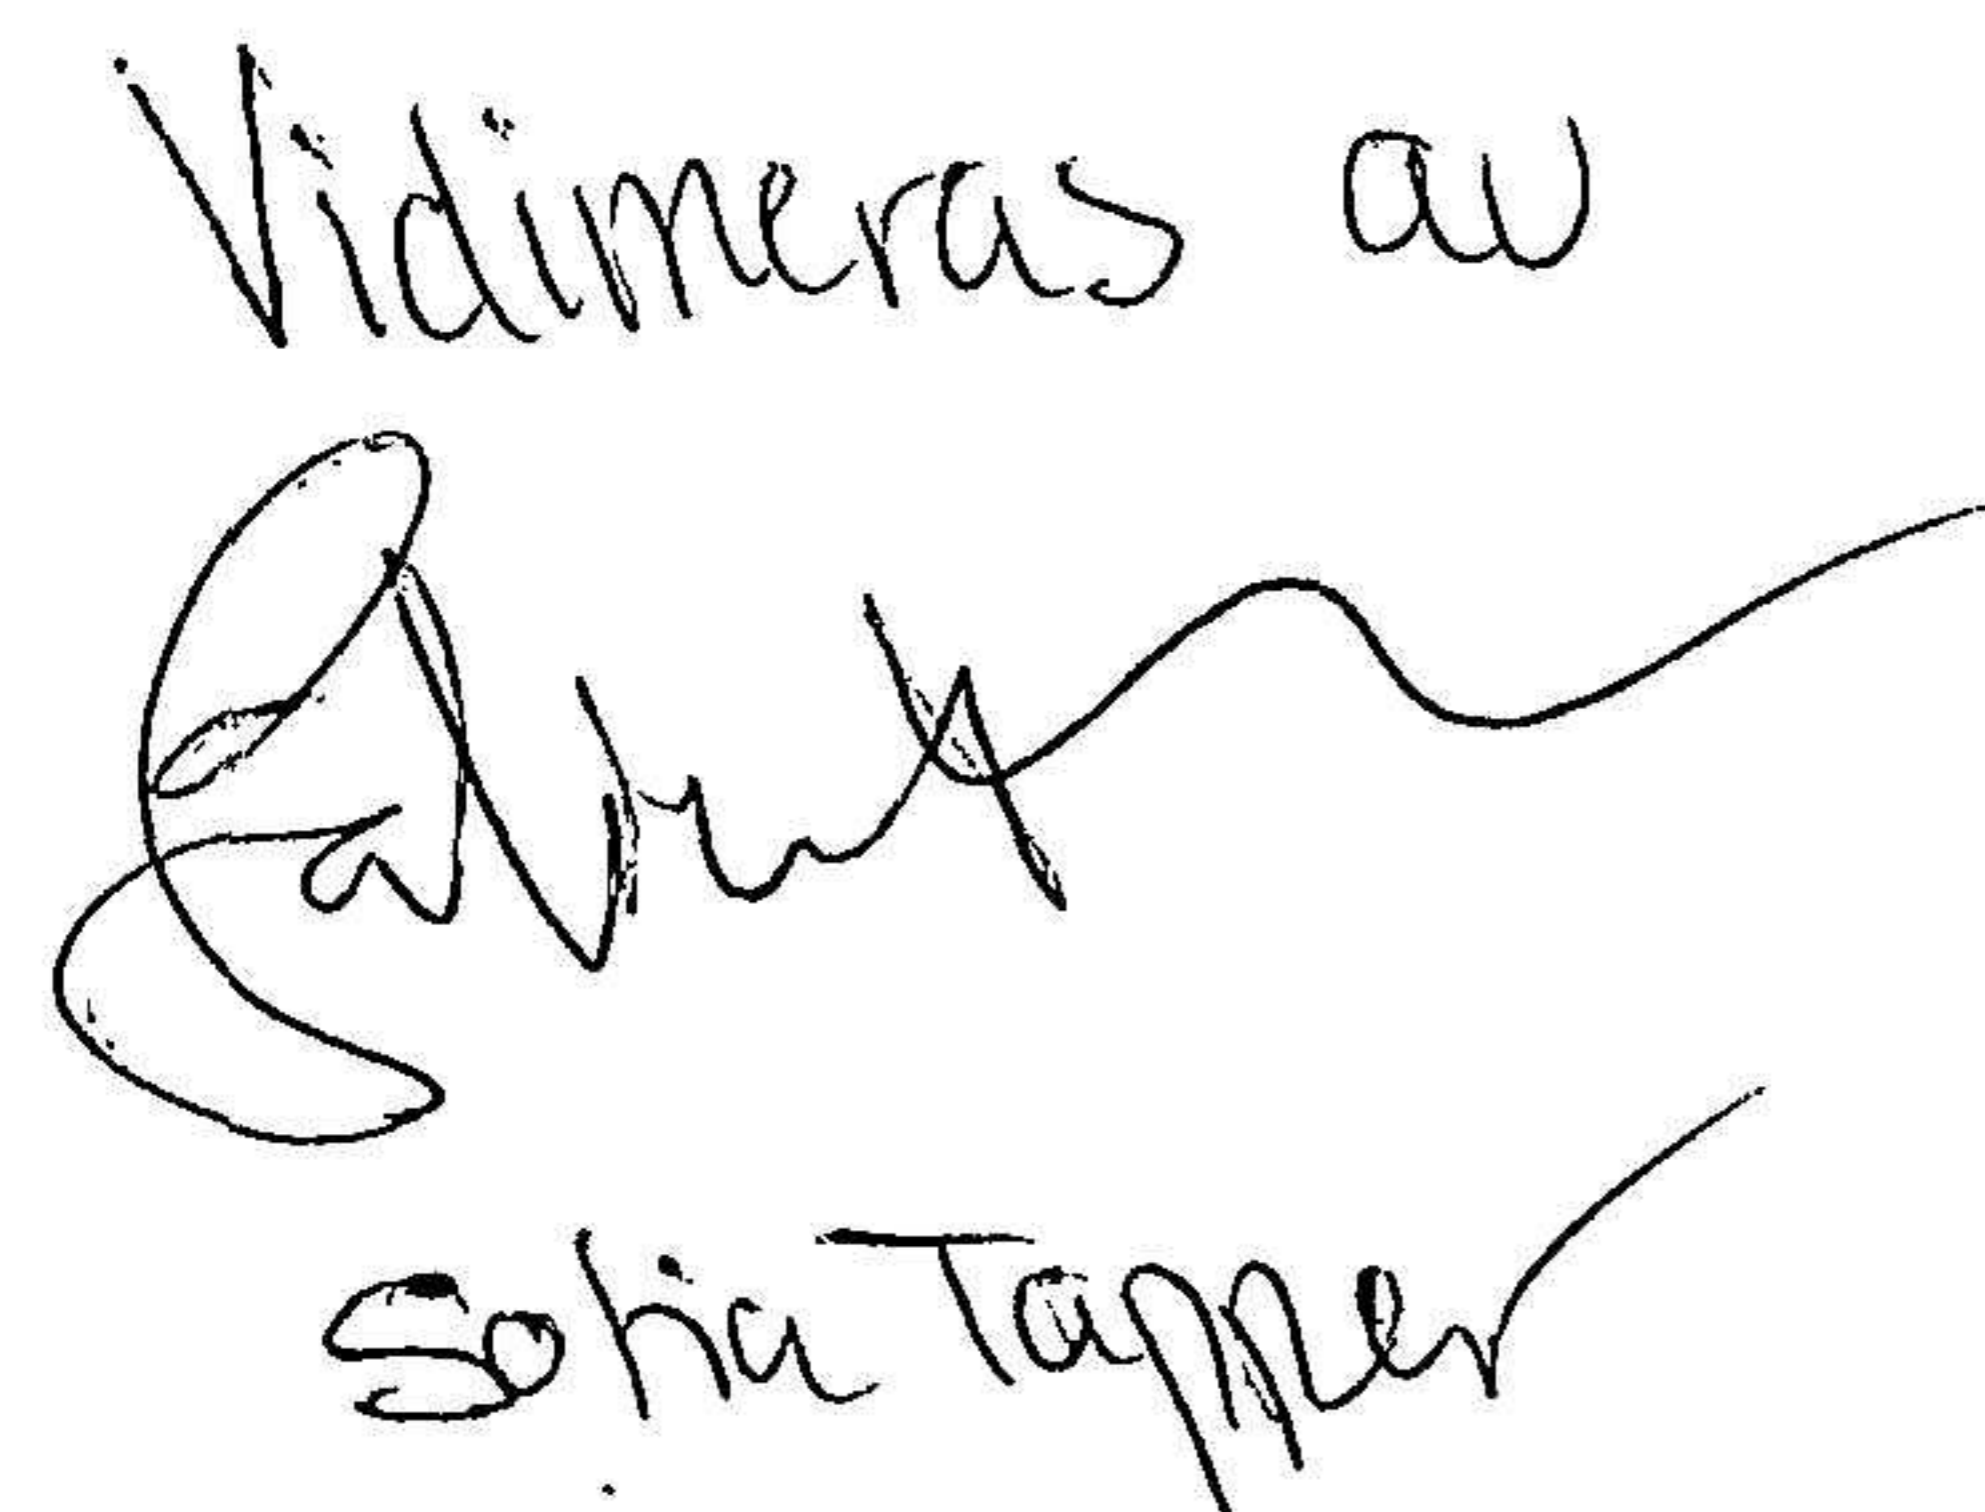 Vidimeras av
Sofia Tapper